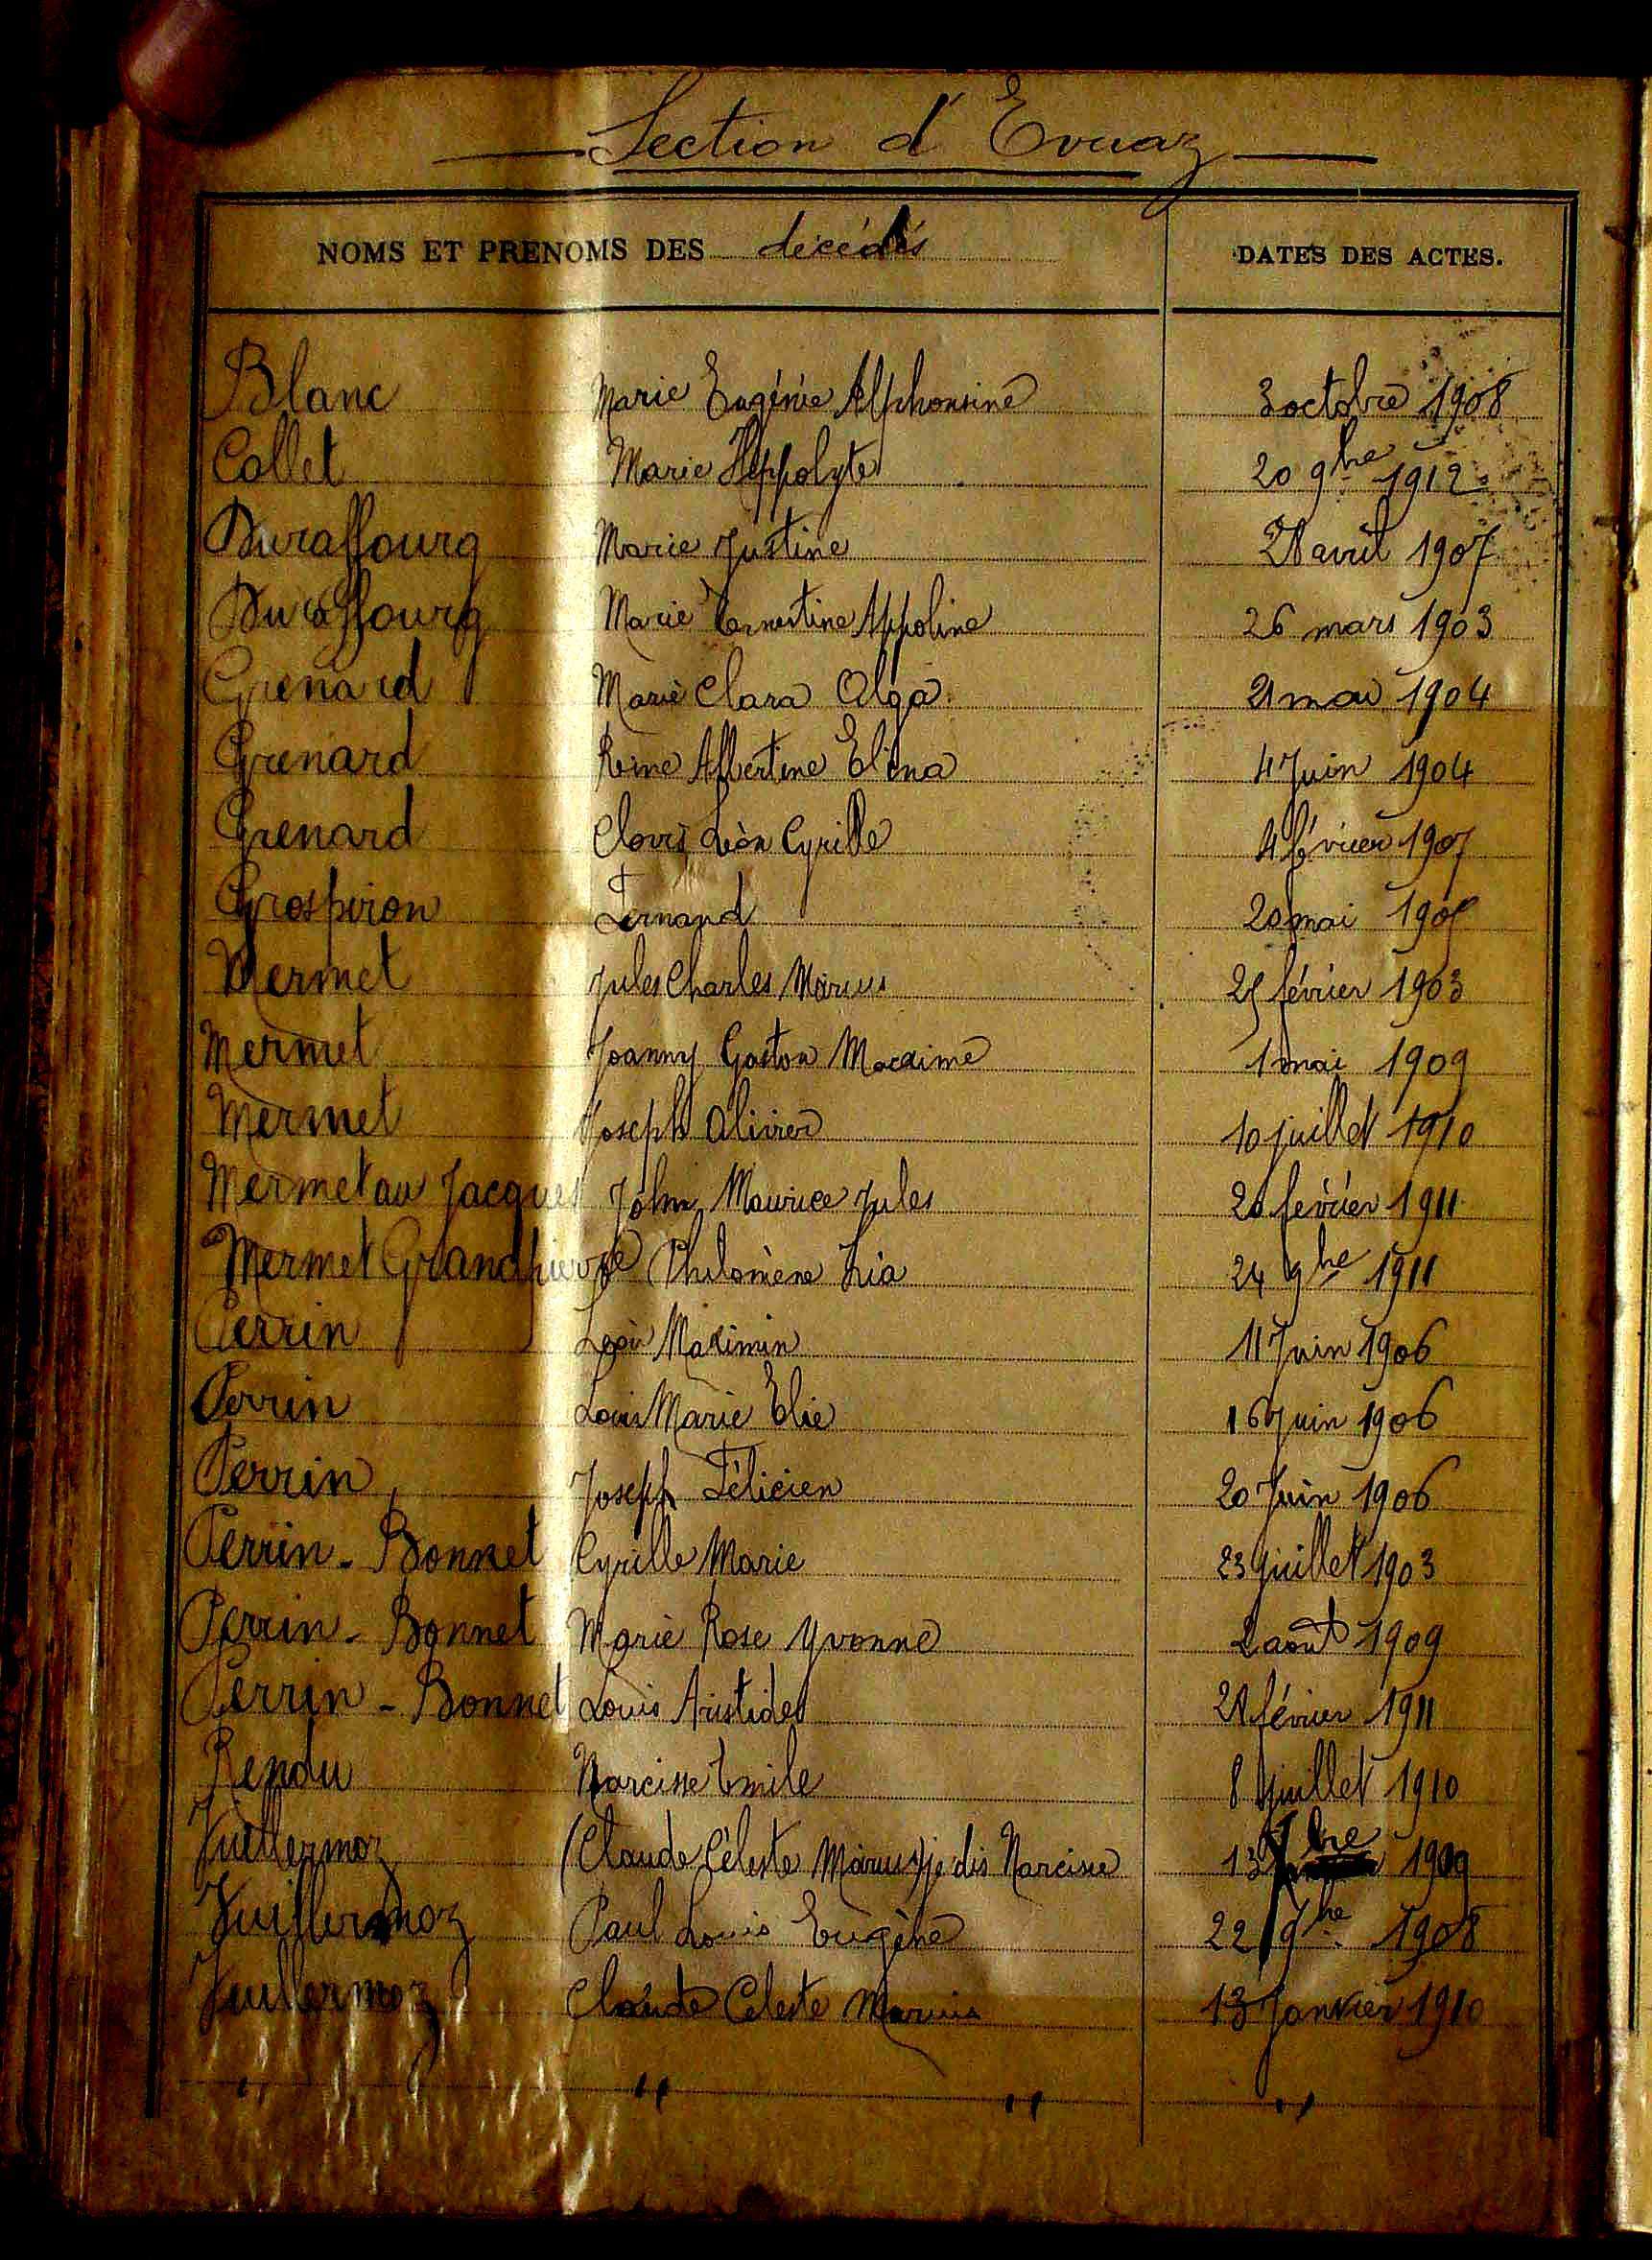 Section d'Evuaz
NOMS ET PRENOMS DES décédés DATES DES ACTES.
Blanc Marie Eugénie Alphonsine 3 octobre 1908
Collet Marie Hippolyte 20 9bre 1912
Duraffourg Marie Justine avril 1907
Duraffourg Marie Ernestine Appoline 26 mars 1903
Grenard Marie Clara Olga 21 mai 1904
Grenard Reine Albertine Elina 4 Juin 1904
Grenard Clovis Léon Cyrille 4 février 1907
Grospiron Fernand 20 mai
Mermet Jules Charles Marius 25 février 1903
Mermet Joanny Gaston Maxime 1 mai 1909
Mermet Joseph Olivier 10 juillet 1910
Mermet au Jacques John Maurice Jules février 1911
Mermet Grandpierre Philomène Lia 24 9bre 1911
Perrin Maximin 11 Juin 1906
Perrin Louis Marie Elie 16 Juin 1906
Perrin Joseph Félicien 20 Juin 1906
Perrin - Bonnet Cyrille Marie 23 juillet 1903
Perrin - Bonnet Marie Rose Yvonne 2 août 1909
Perrin - Bonnet Louis Aristide février 1911
Rendu Narcisse Emile 8 juillet 1910
Vuillermoz (Claude Céleste Marius) je dis Narcisse 13 1909
Vuillermoz Paul Louis Eugène 22 9bre 1908
Vuillermoz Claude Celeste Marius 13 Janvier 1910
" " " "